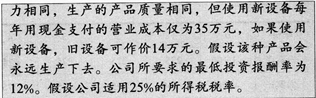 力相同，生产的产品质量相同，但使用新设备每
年用现金支付的营业成本仅为35万元，如果使用
新设备，旧设备可作价14万元。假设该种产品会
永远生产下去。公司所要求的最低投资报酬率为
12%。假设公司适用25%的所得税税率。